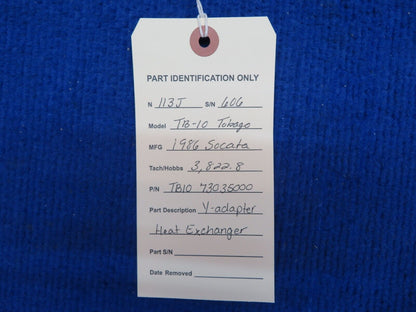 PART IDENTIFICATION ONLY
N 113J S/N 606
Model TB-10 Tobago
MFG 1986 Socata
Tach/Hobbs 3,822.8
P/N TB10 73035000
Part Description Y-adapter
Heat Exchanger
Part S/N
Date Removed